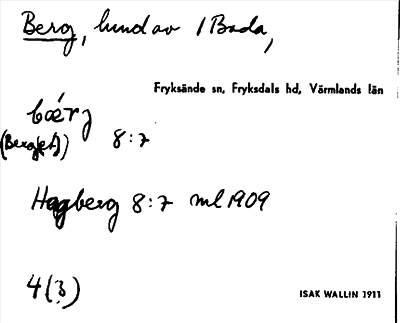 Berg, lund av / Bada,
Fryksände sn, Fryksdals hd, Värmlands län
bærj
(Berg(et)) 8:7
Hagberg 8:7 ml 1909
4(3)
ISAK WALLIN 1911